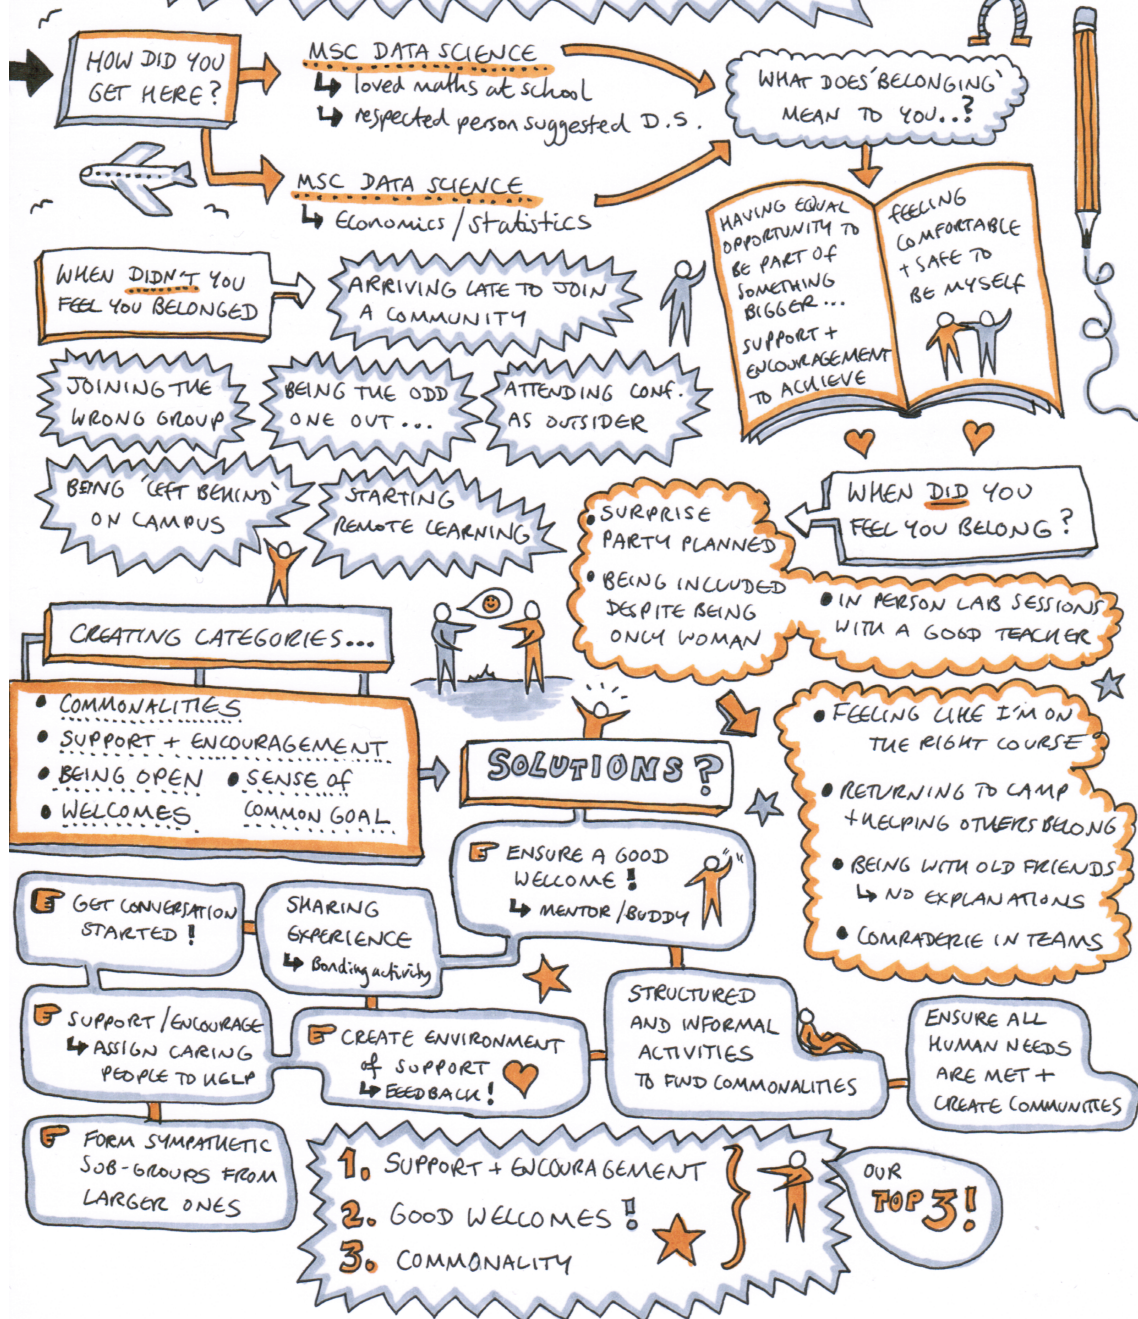 HOW DID YOU
GET HERE?
MSC DATA SCIENCE
loved maths at school
respected person suggested D.S.
MSC DATA SCIENCE
Economics/Statistics
WHAT DOES 'BELONGING'
MEAN TO YOU..?
HAVING EQUAL
OPPORTUNITY TO
BE PART OF
SOMETHING
BIGGER...
SUPPORT +
ENCOURAGEMENT
TO ACHIEVE
FEELING
COMFORTABLE
+ SAFE TO
BE MYSELF
WHEN DIDN'T YOU
FEEL YOU BELONGED
ARRIVING LATE TO JOIN
A COMMUNITY
JOINING THE
WRONG GROUP
BEING THE ODD
ONE OUT...
ATTENDING CONF.
AS OUTSIDER
BEING 'LEFT BEHIND'
ON CAMPUS
STARTING
REMOTE LEARNING
WHEN DID YOU
FEEL YOU BELONG?
• SURPRISE
PARTY PLANNED
• BEING INCLUDED
DESPITE BEING
ONLY WOMAN
• IN PERSON LAB SESSIONS
WITH A GOOD TEACHER
• FEELING LIKE I'M ON
THE RIGHT COURSE
• RETURNING TO CAMP
+ HELPING OTHERS BELONG
• BEING WITH OLD FRIENDS
NO EXPLANATIONS
• COMRADERIE IN TEAMS
CREATING CATEGORIES...
• COMMONALITIES
• SUPPORT + ENCOURAGEMENT
• BEING OPEN
• WELCOMES
• SENSE OF
COMMON GOAL
SOLUTIONS?
ENSURE A GOOD
WELCOME!
MENTOR/BUDDY
GET CONVERSATION
STARTED!
SHARING
EXPERIENCE
Bonding activity
SUPPORT/ENCOURAGE
ASSIGN CARING
PEOPLE TO HELP
CREATE ENVIRONMENT
of SUPPORT
FEEDBACK!
STRUCTURED
AND INFORMAL
ACTIVITIES
TO FIND COMMONALITIES
ENSURE ALL
HUMAN NEEDS
ARE MET +
CREATE COMMUNITIES
FORM SYMPATHETIC
SUB-GROUPS FROM
LARGER ONES
1. SUPPORT + ENCOURAGEMENT
2. GOOD WELCOMES!
3. COMMONALITY
OUR
TOP 3!